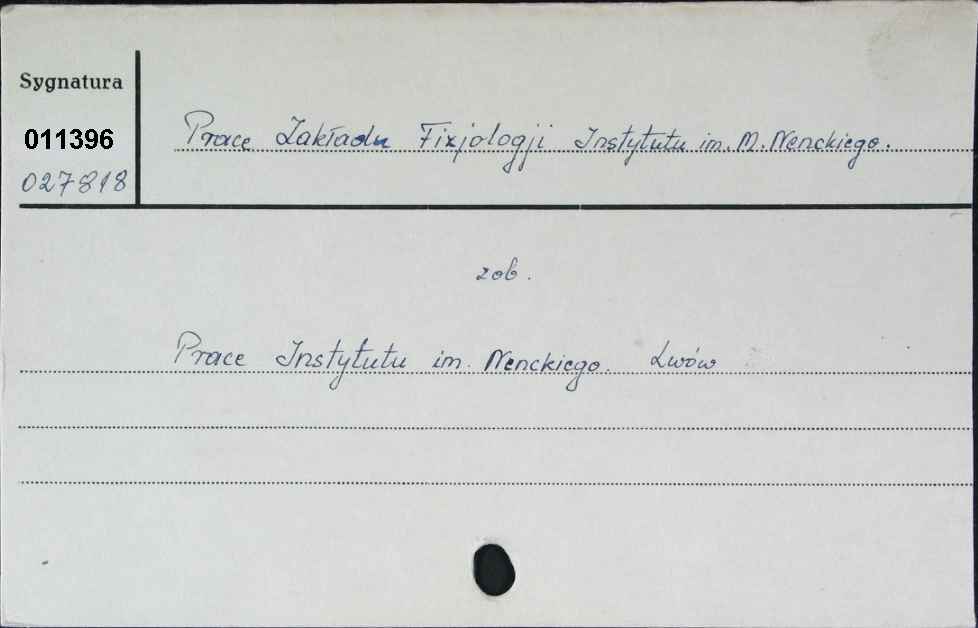 Sygnatura
011396
027818
Prace Zakładu Fizjologji Instytutu im. M. Nenckiego.
zob.
Prace Instytutu im. Nenckiego. Lwów